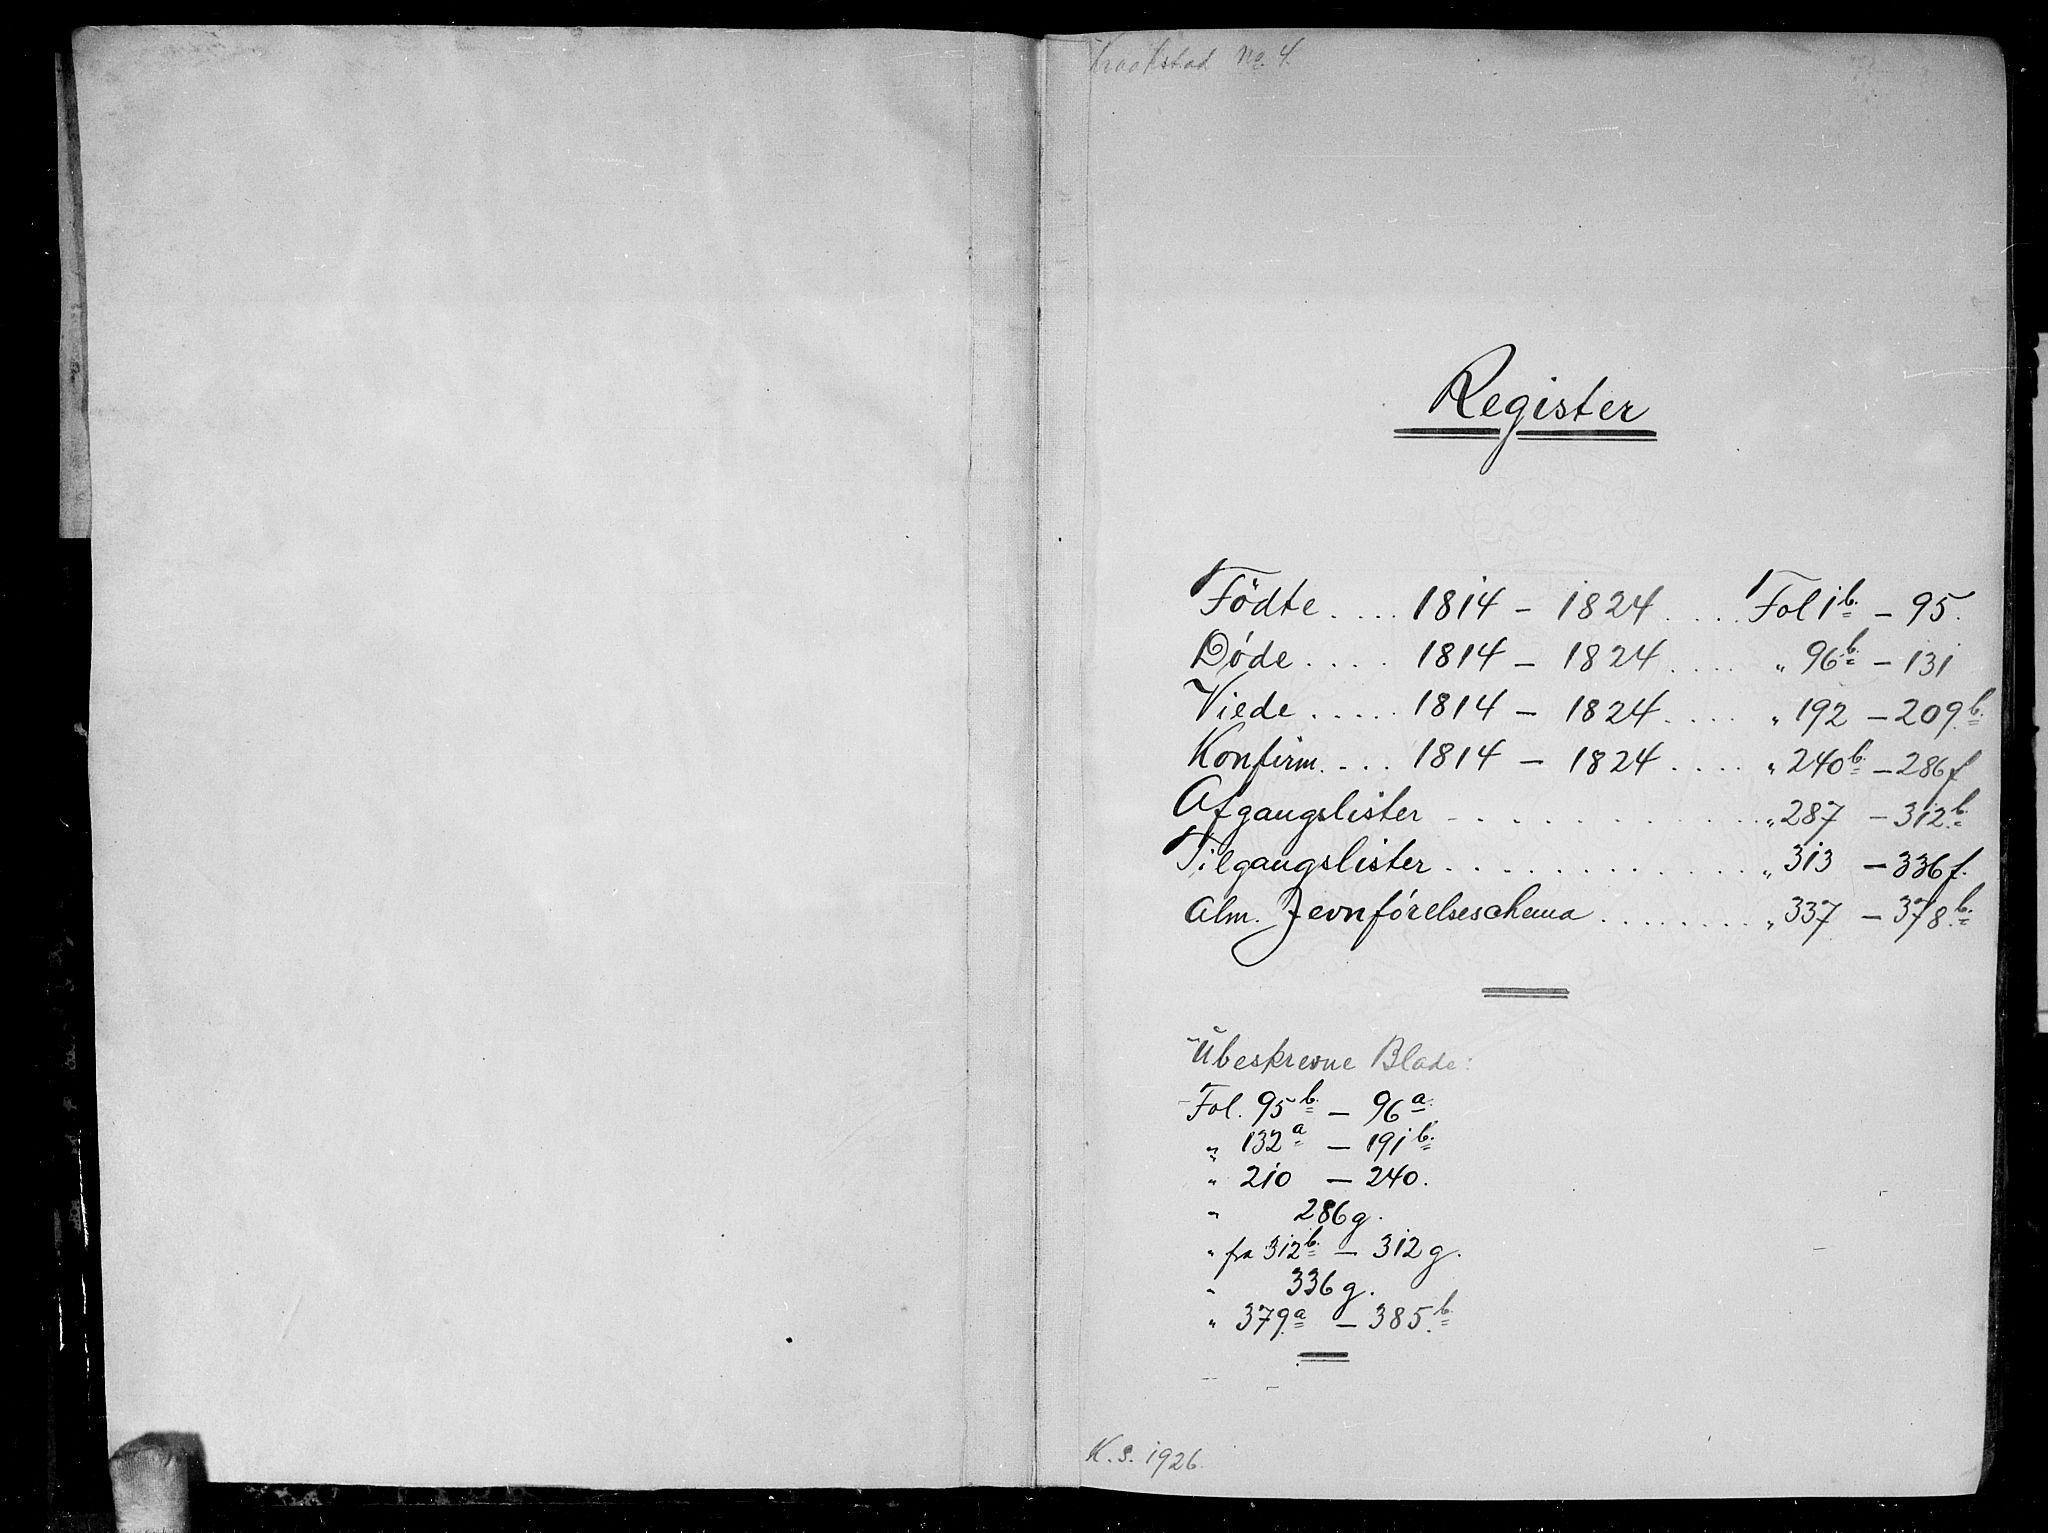 Kraakstad No. 4.
Register
Födte ..... 1814 – 1824 ..... Fol 1b. – 95.
Døde .... 1814 – 1824 .... " 96b. – 131
Viede ..... 1814 – 1824 .... " 192 – 209b.
Konfirm. ... 1814 – 1824 .... " 240b. – 286f
Afgangslister ............ " 287 – 312b.
Tilgangslister ............ " 313 – 336f.
Alm. Jevnførelseschema ........ " 337 – 378b.
Ubeskrevne Blade:
Fol. 95b. – 96a.
" 132a – 191b.
" 210 – 240.
" 286g.
" fra 312b. – 312g.
" 336g.
" 379a – 385b.
K. S. 1926.